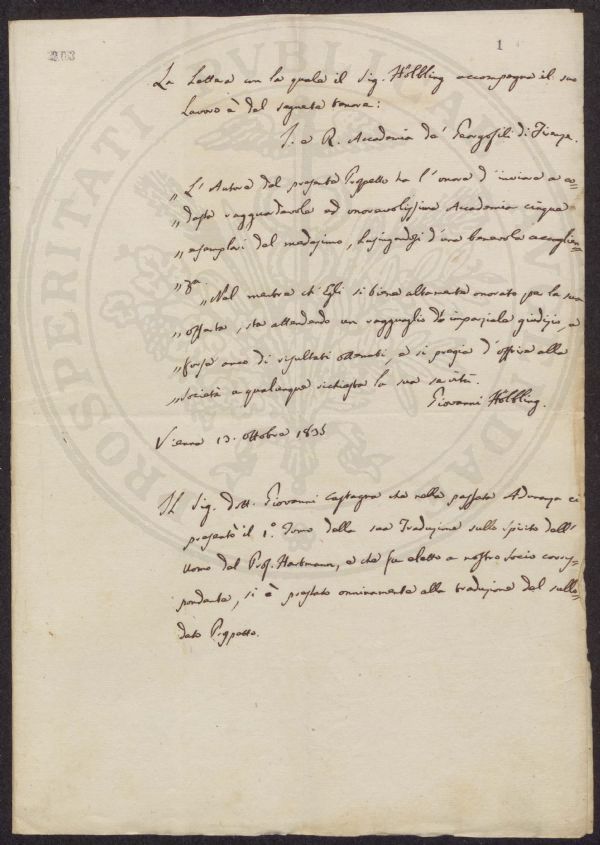 1
La Lettera con la quale il Sig. Hölbling accompagna il suo
Lavoro è del seguente tenore:
I. e R. Accademia de' Georgofili di Firenze.
„ L'Autore del presente Prospetto ha l'onore d'inviare a co=
„ desta ragguardevole ed onorevolissima Accademia cinque
„ esemplari del medesimo, lusingandosi d'una benevola accoglien=
„ za.
„ Nel mentre ch'Egli si tiene altamente onorato per la sua
„ offerta, sta attendendo un ragguaglio d'imparziale giudizio, e
„ forse anco di risultati ottenuti, e si pregia d'offrire alla
„ Società a qualunque richiesta la sua servitù.
Giovanni Hölbling.
Vienna 13. Ottobre 1835
Il Sig. Dott. Giovanni Castagna che nella passata Adunanza ci
presentò il 1.º Tomo della sua Traduzione sullo Spirito dell'
Uomo del Prof. Hartmann, e che fu eletto a nostro Socio corris=
pondente, si è prestato onninamente alla traduzione del sullo=
dato Prospetto.
PROSPERITATI PUBLICAE AUGENDAE